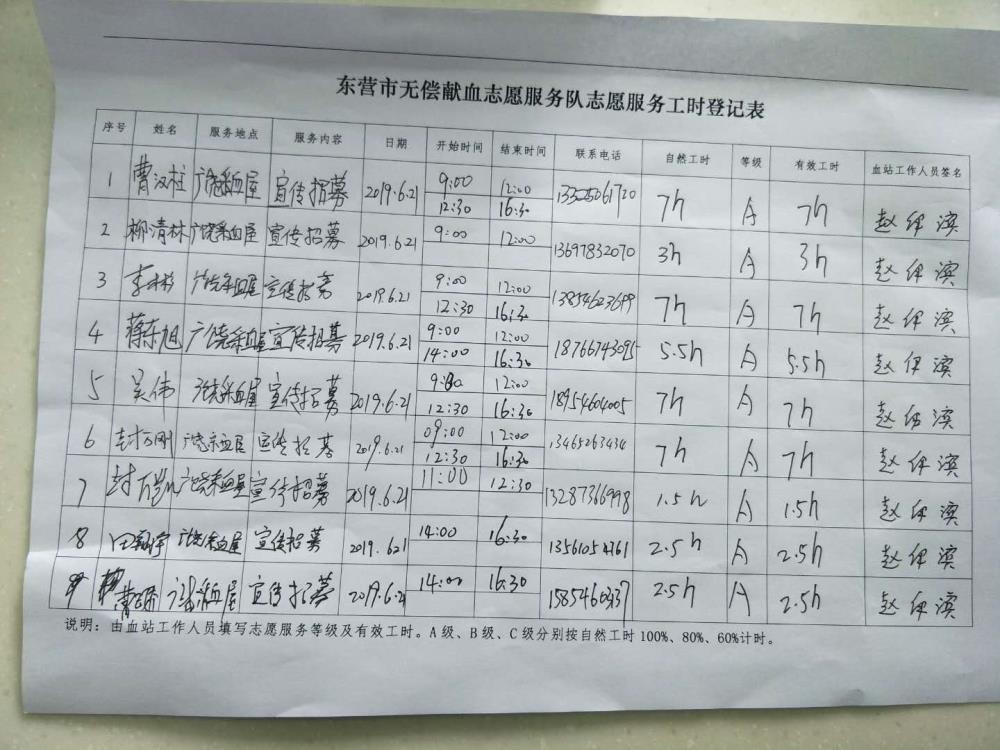 东营市无偿献血志愿服务队志愿服务工时登记表
序号 姓名 服务地点 服务内容 日期 开始时间 结束时间 联系电话 自然工时 等级 有效工时 血站工作人员签名
1 曹汉柱 广饶采血屋 宣传招募 2019.6.21 9:00 12:00 7h A 7h
12:30 16:30
2 柳清林 广饶采血屋 宣传招募 2019.6.21 9:00 12:00 13697832070 3h A 3h
3 广饶采血屋 宣传招募 2019.6.21 9:00 12:00 13854623699 7h A 7h
12:30 16:30
4 蒋东旭 广饶采血屋 宣传招募 2019.6.21 9:00 12:00 18766743095 5.5h A 5.5h
14:00 16:30
5 吴伟 广饶采血屋 宣传招募 2019.6.21 9:00 12:00 18954604005 7h A 7h
12:30 16:30
6 封万刚 广饶采血屋 宣传招募 2019.6.21 09:00 12:00 13465263434 7h A 7h
12:30 16:30
7 广饶采血屋 宣传招募 2019.6.21 11:00 12:30 13287366998 1.5h A 1.5h
8 广饶采血屋 宣传招募 2019.621 14:00 16:30 2.5h A 2.5h
9 广饶采血屋 宣传招募 2019.6.21 14:00 16:30 2.5h A 2.5h
说明:由血站工作人员填写志愿服务等级及有效工时。A级、B级、C级分别按自然工时100%、80%、60%计时。